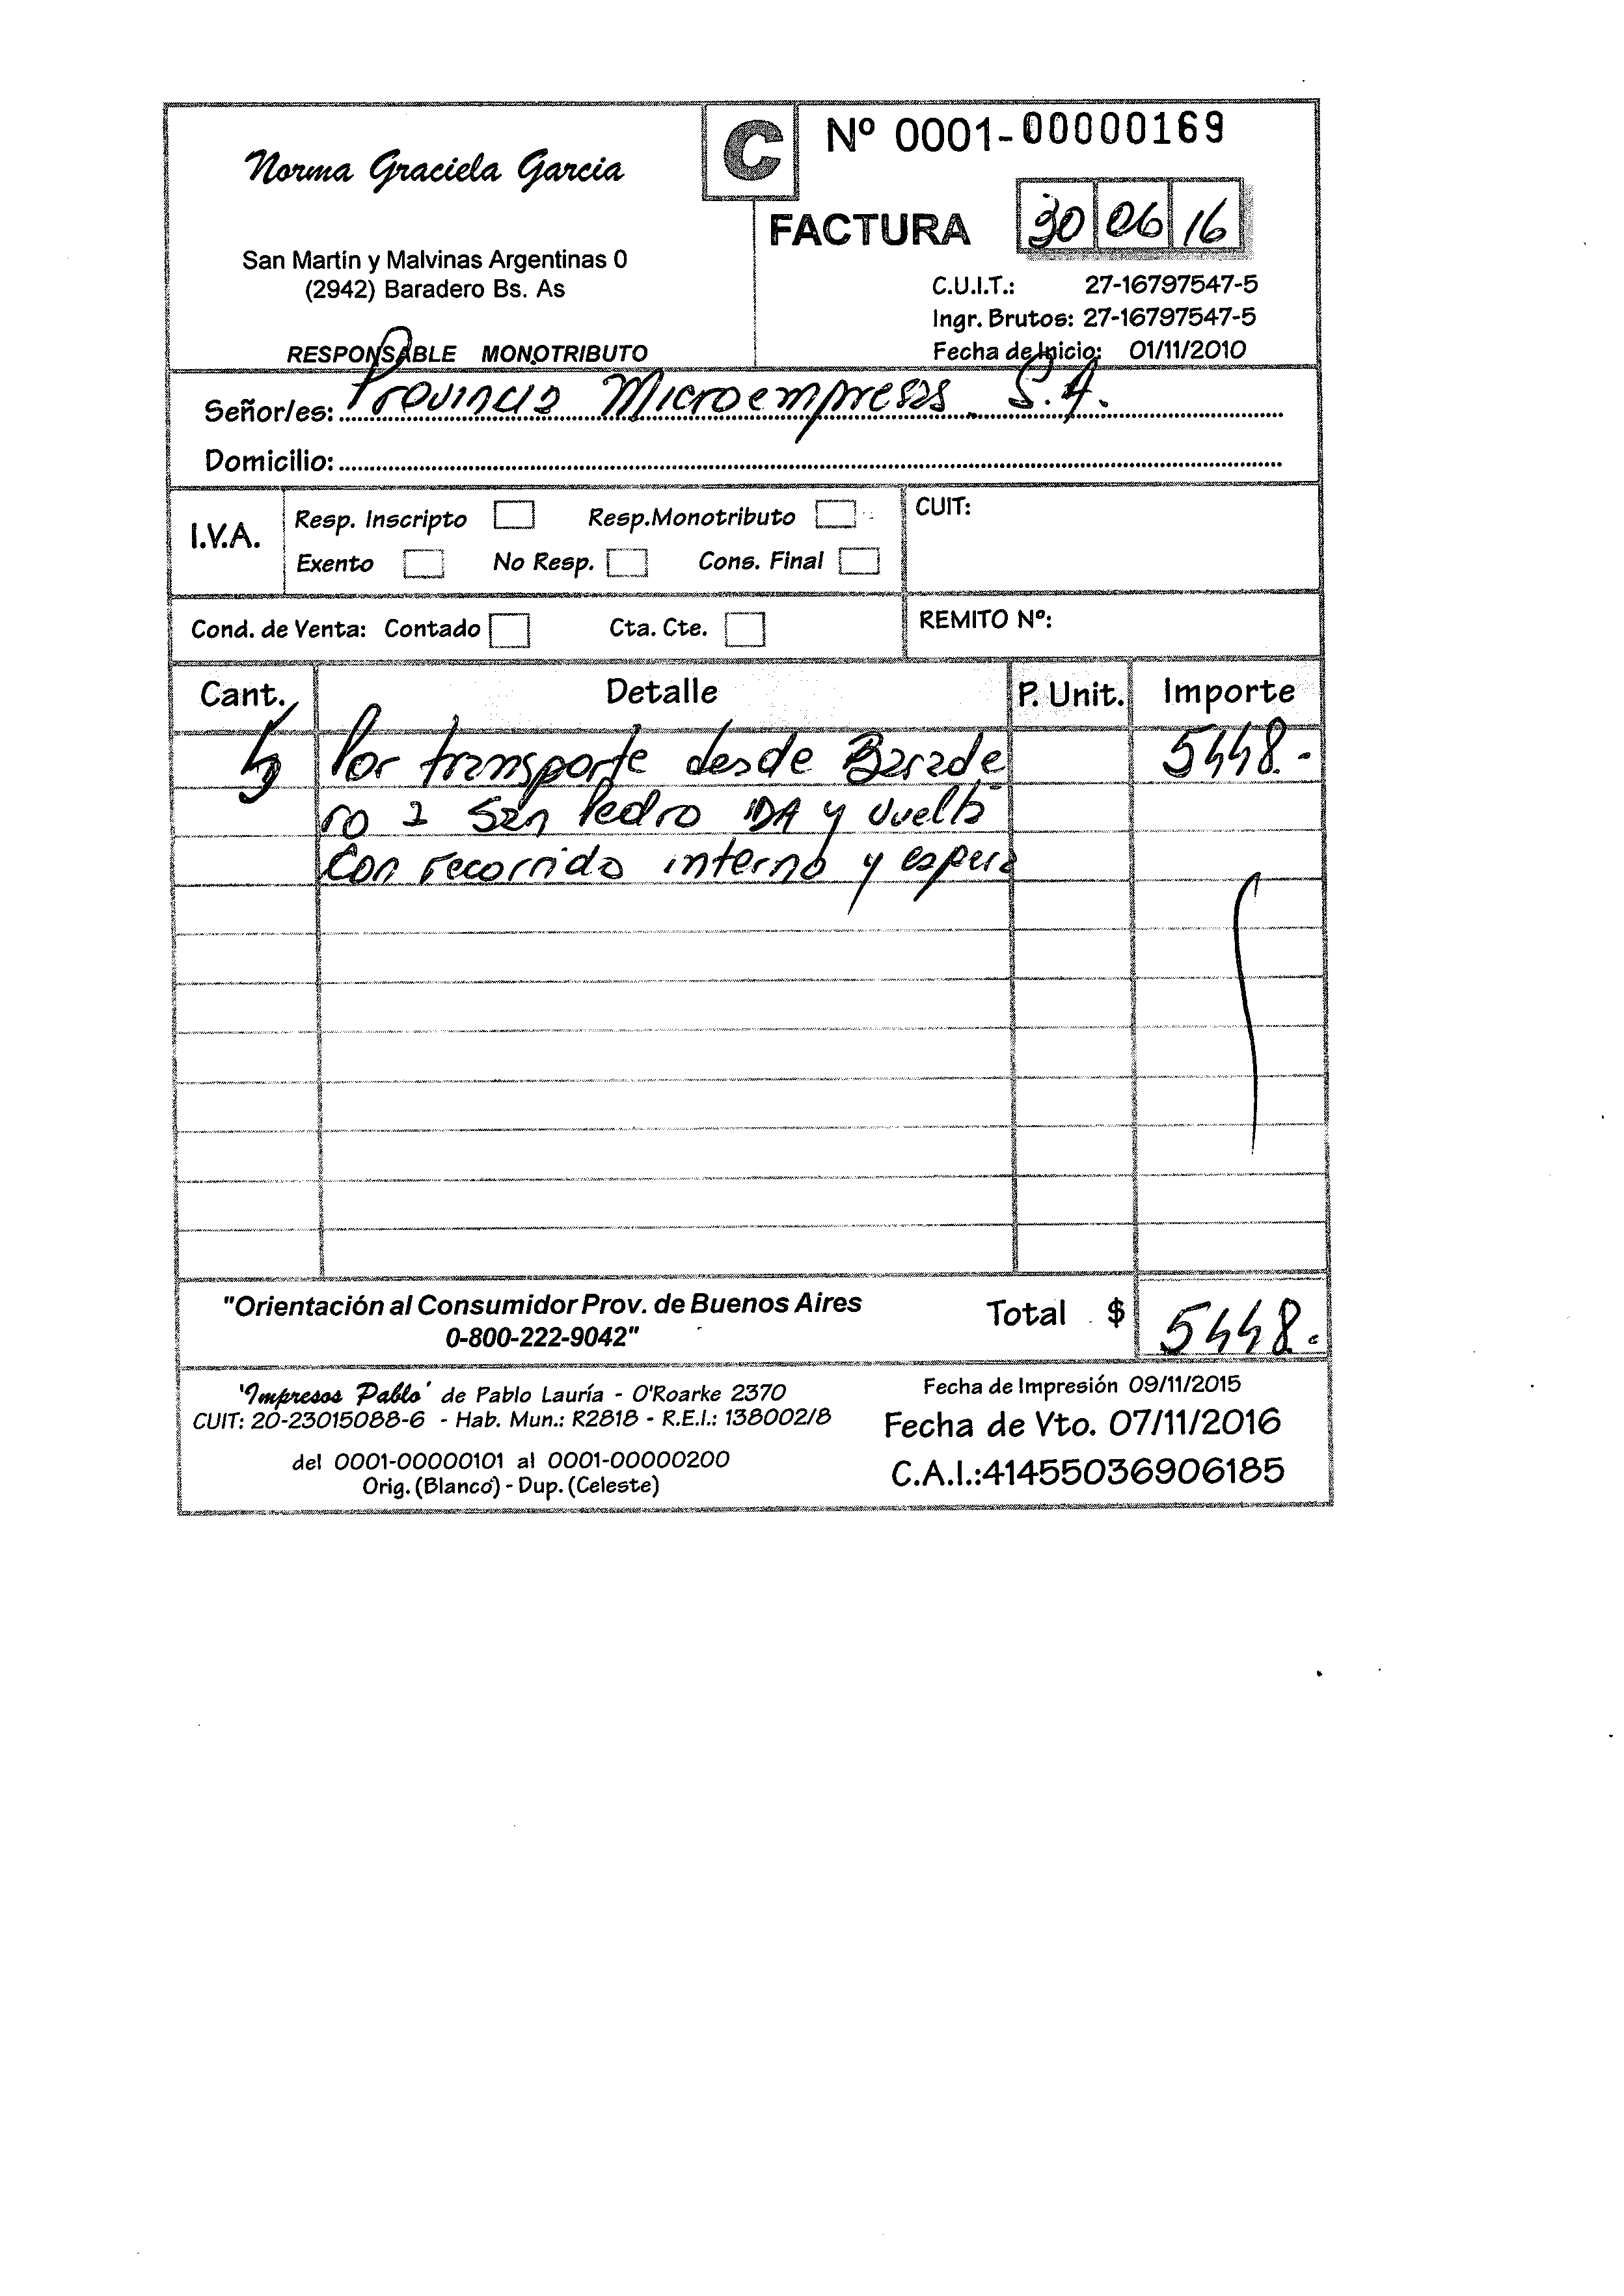 Norma Graciela Garcia
C
Nº 0001-00000169
FACTURA 30 06 16
San Martin y Malvinas Argentinas 0
(2942) Baradero Bs. As
C.U.I.T.: 27-16797547-5
Ingr. Brutos: 27-16797547-5
RESPONSABLE MONOTRIBUTO
Fecha de Inicio: 01/11/2010
Señor/es: Provincia Microempresas S.A.
Domicilio:
I.V.A.
Resp. Inscripto Resp.Monotributo
Exento No Resp. Cons. Final
CUIT:
Cond. de Venta: Contado Cta. Cte.
REMITO Nº:
Cant. Detalle P. Unit. Importe
Por transporte desde Barade 5448.-
ro a San Pedro IDA y vuelta
Con recorrido interno y espera
"Orientación al Consumidor Prov. de Buenos Aires
0-800-222-9042"
Total $ 5448.
'Impresos Pablo' de Pablo Lauría - O'Roarke 2370
CUIT: 20-23015088-6 - Hab. Mun.: R2818 - R.E.I.: 138002/8
del 0001-00000101 al 0001-00000200
Orig. (Blanco) - Dup. (Celeste)
Fecha de Impresión 09/11/2015
Fecha de Vto. 07/11/2016
C.A.I.:41455036906185